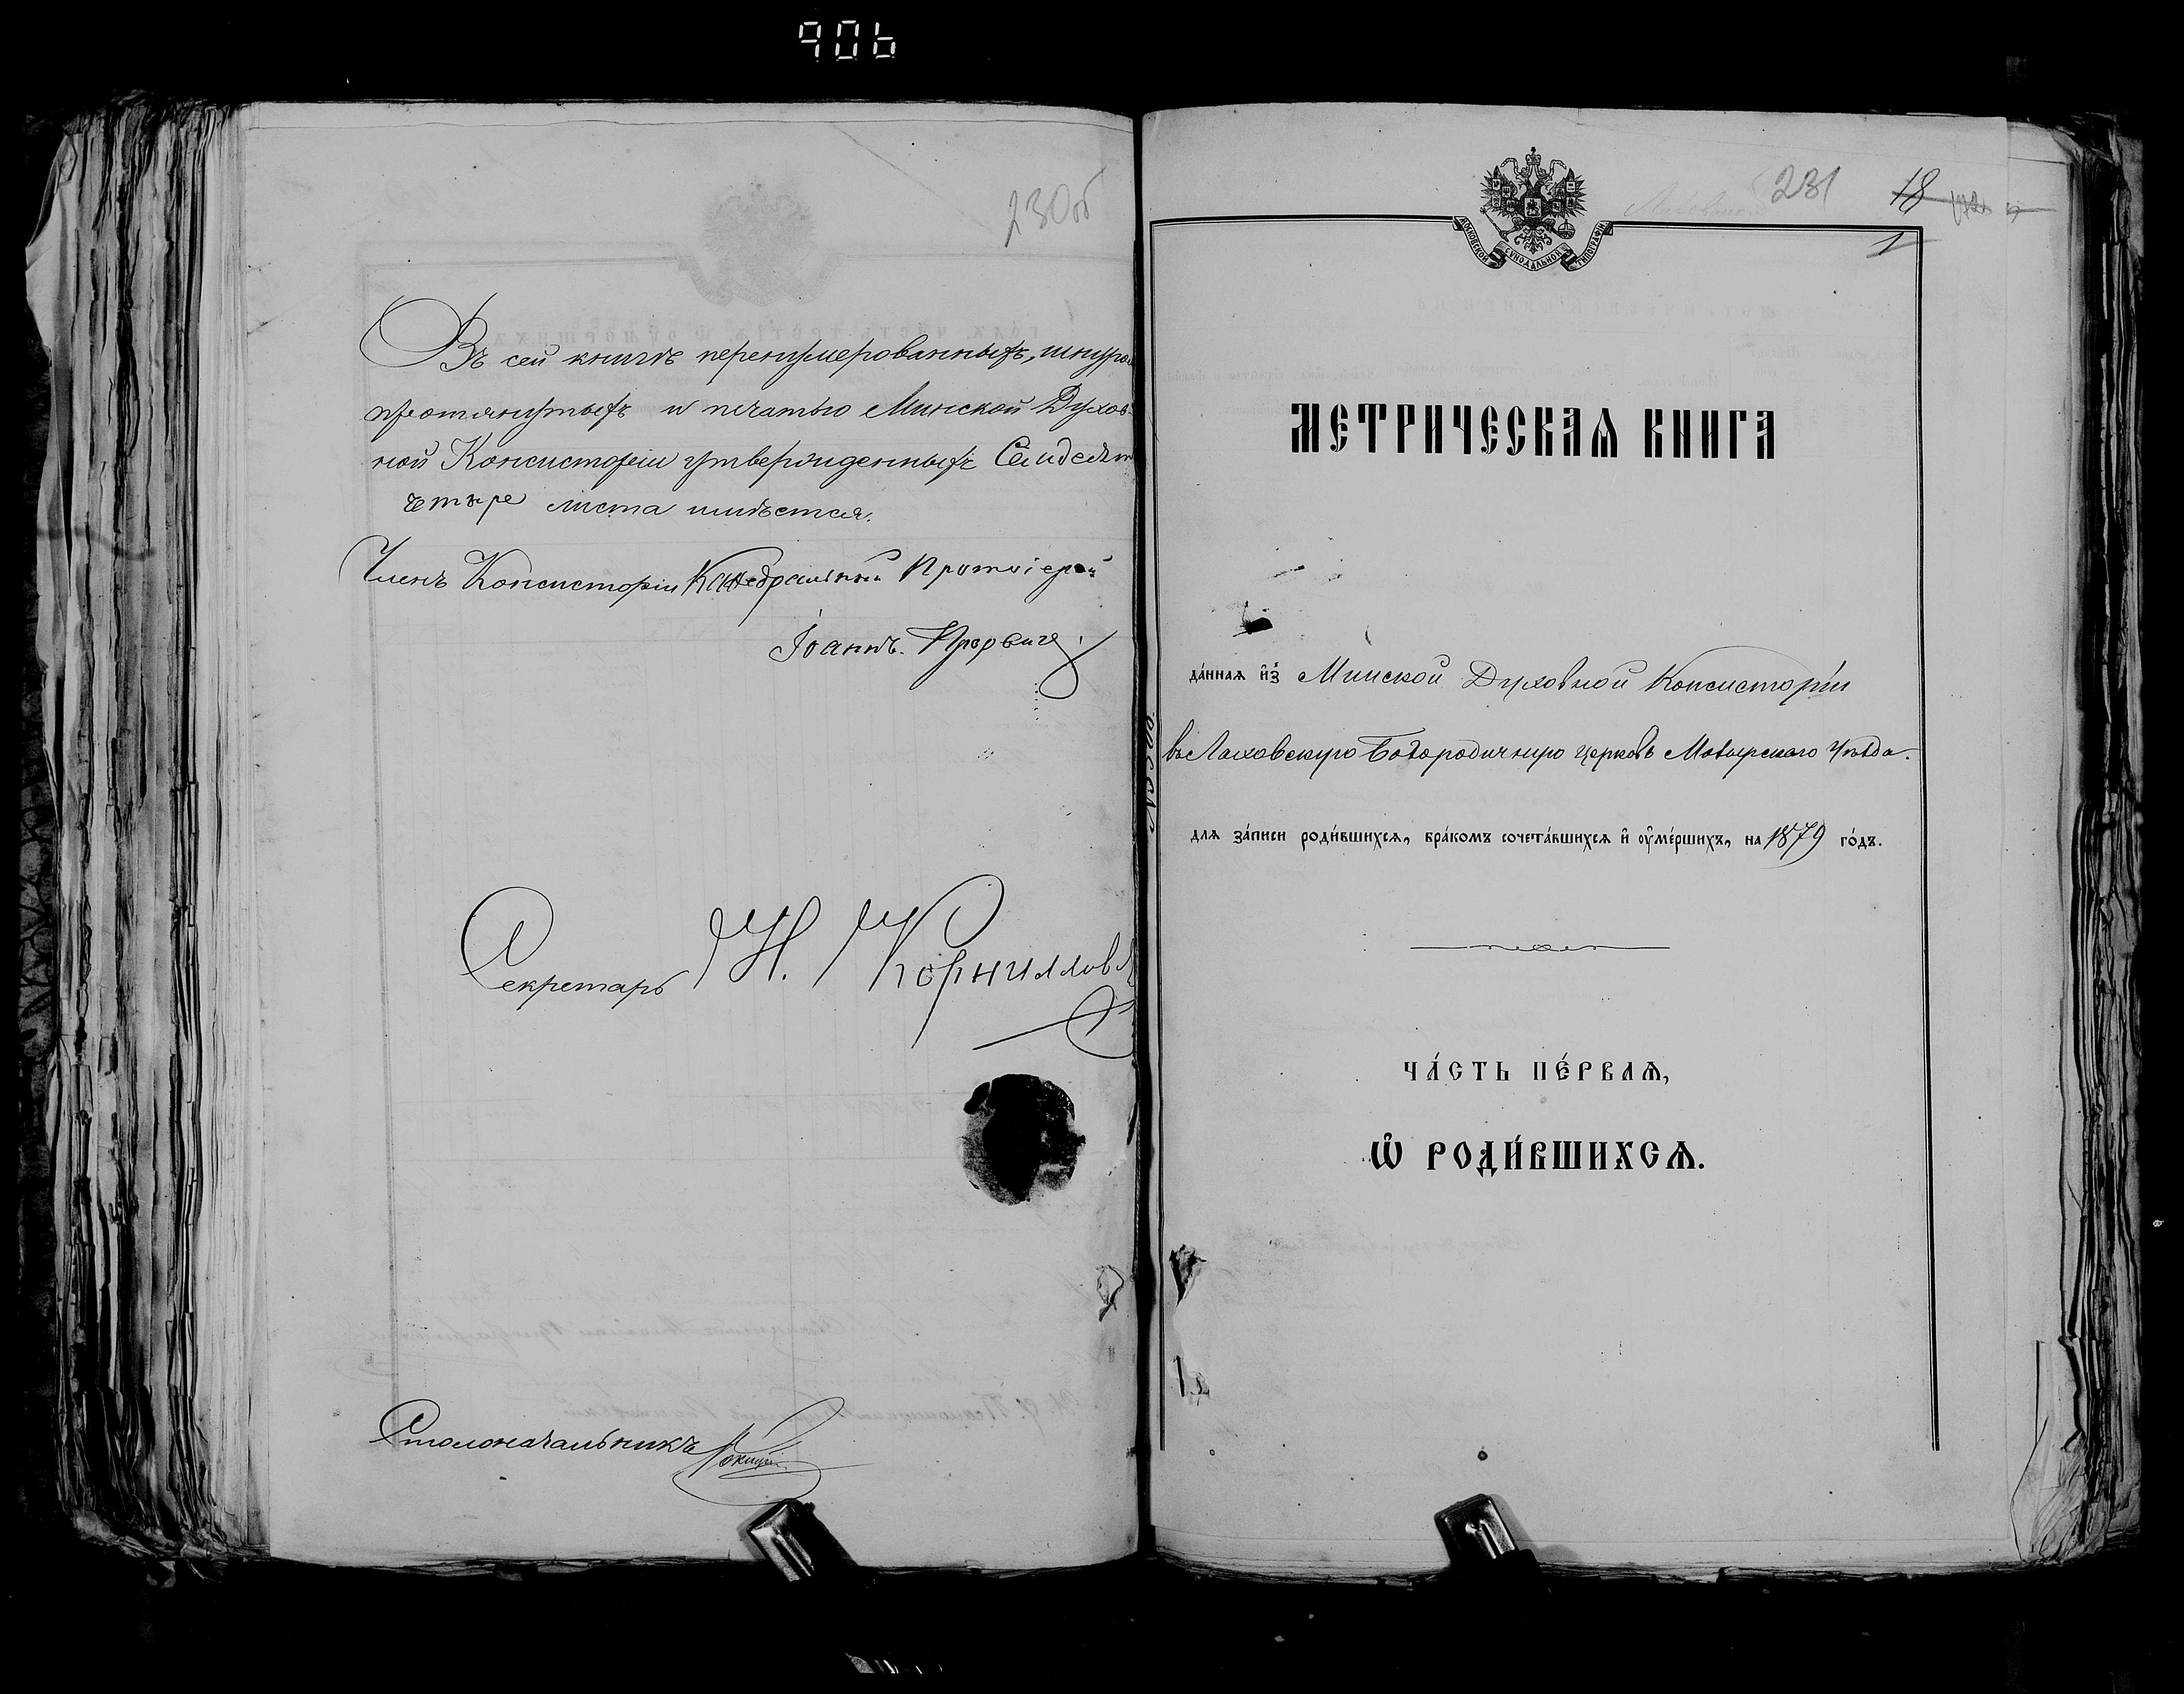 906
230об
Въ сей книгѣ перенумерованныхъ, шнуро
протянутыхъ и печатью Минской Духов-
ной Консисторіи утвержденныхъ Семдесят
четыре листа имѣется.
Членъ Консисторіи Каѳедральный Протоіерей
Іоаннъ.
Секретарь Н. Корнилов
Столоначальникъ
231 18
1
МОСКОВСКОЙ СУНОДАЛЬНОЙ ТИПОГРАФІИ
МЕТРИЧЕСКАѦ КНИГА
да́ннаѧ и҆з̾ Минской Духовной Консисторіи
въ Лаховскую Богородичную церковь Мозырскаго Уѣзда.
длѧ за́писи роди́вшихсѧ, бра́комъ сочета́вшихсѧ и҆ ᲂу҆ме́ршихъ, на 1879 го́дъ.
ЧА́СТЬ ПЕ́РВАѦ,
Ѽ РОДИ́ВШИХСѦ.